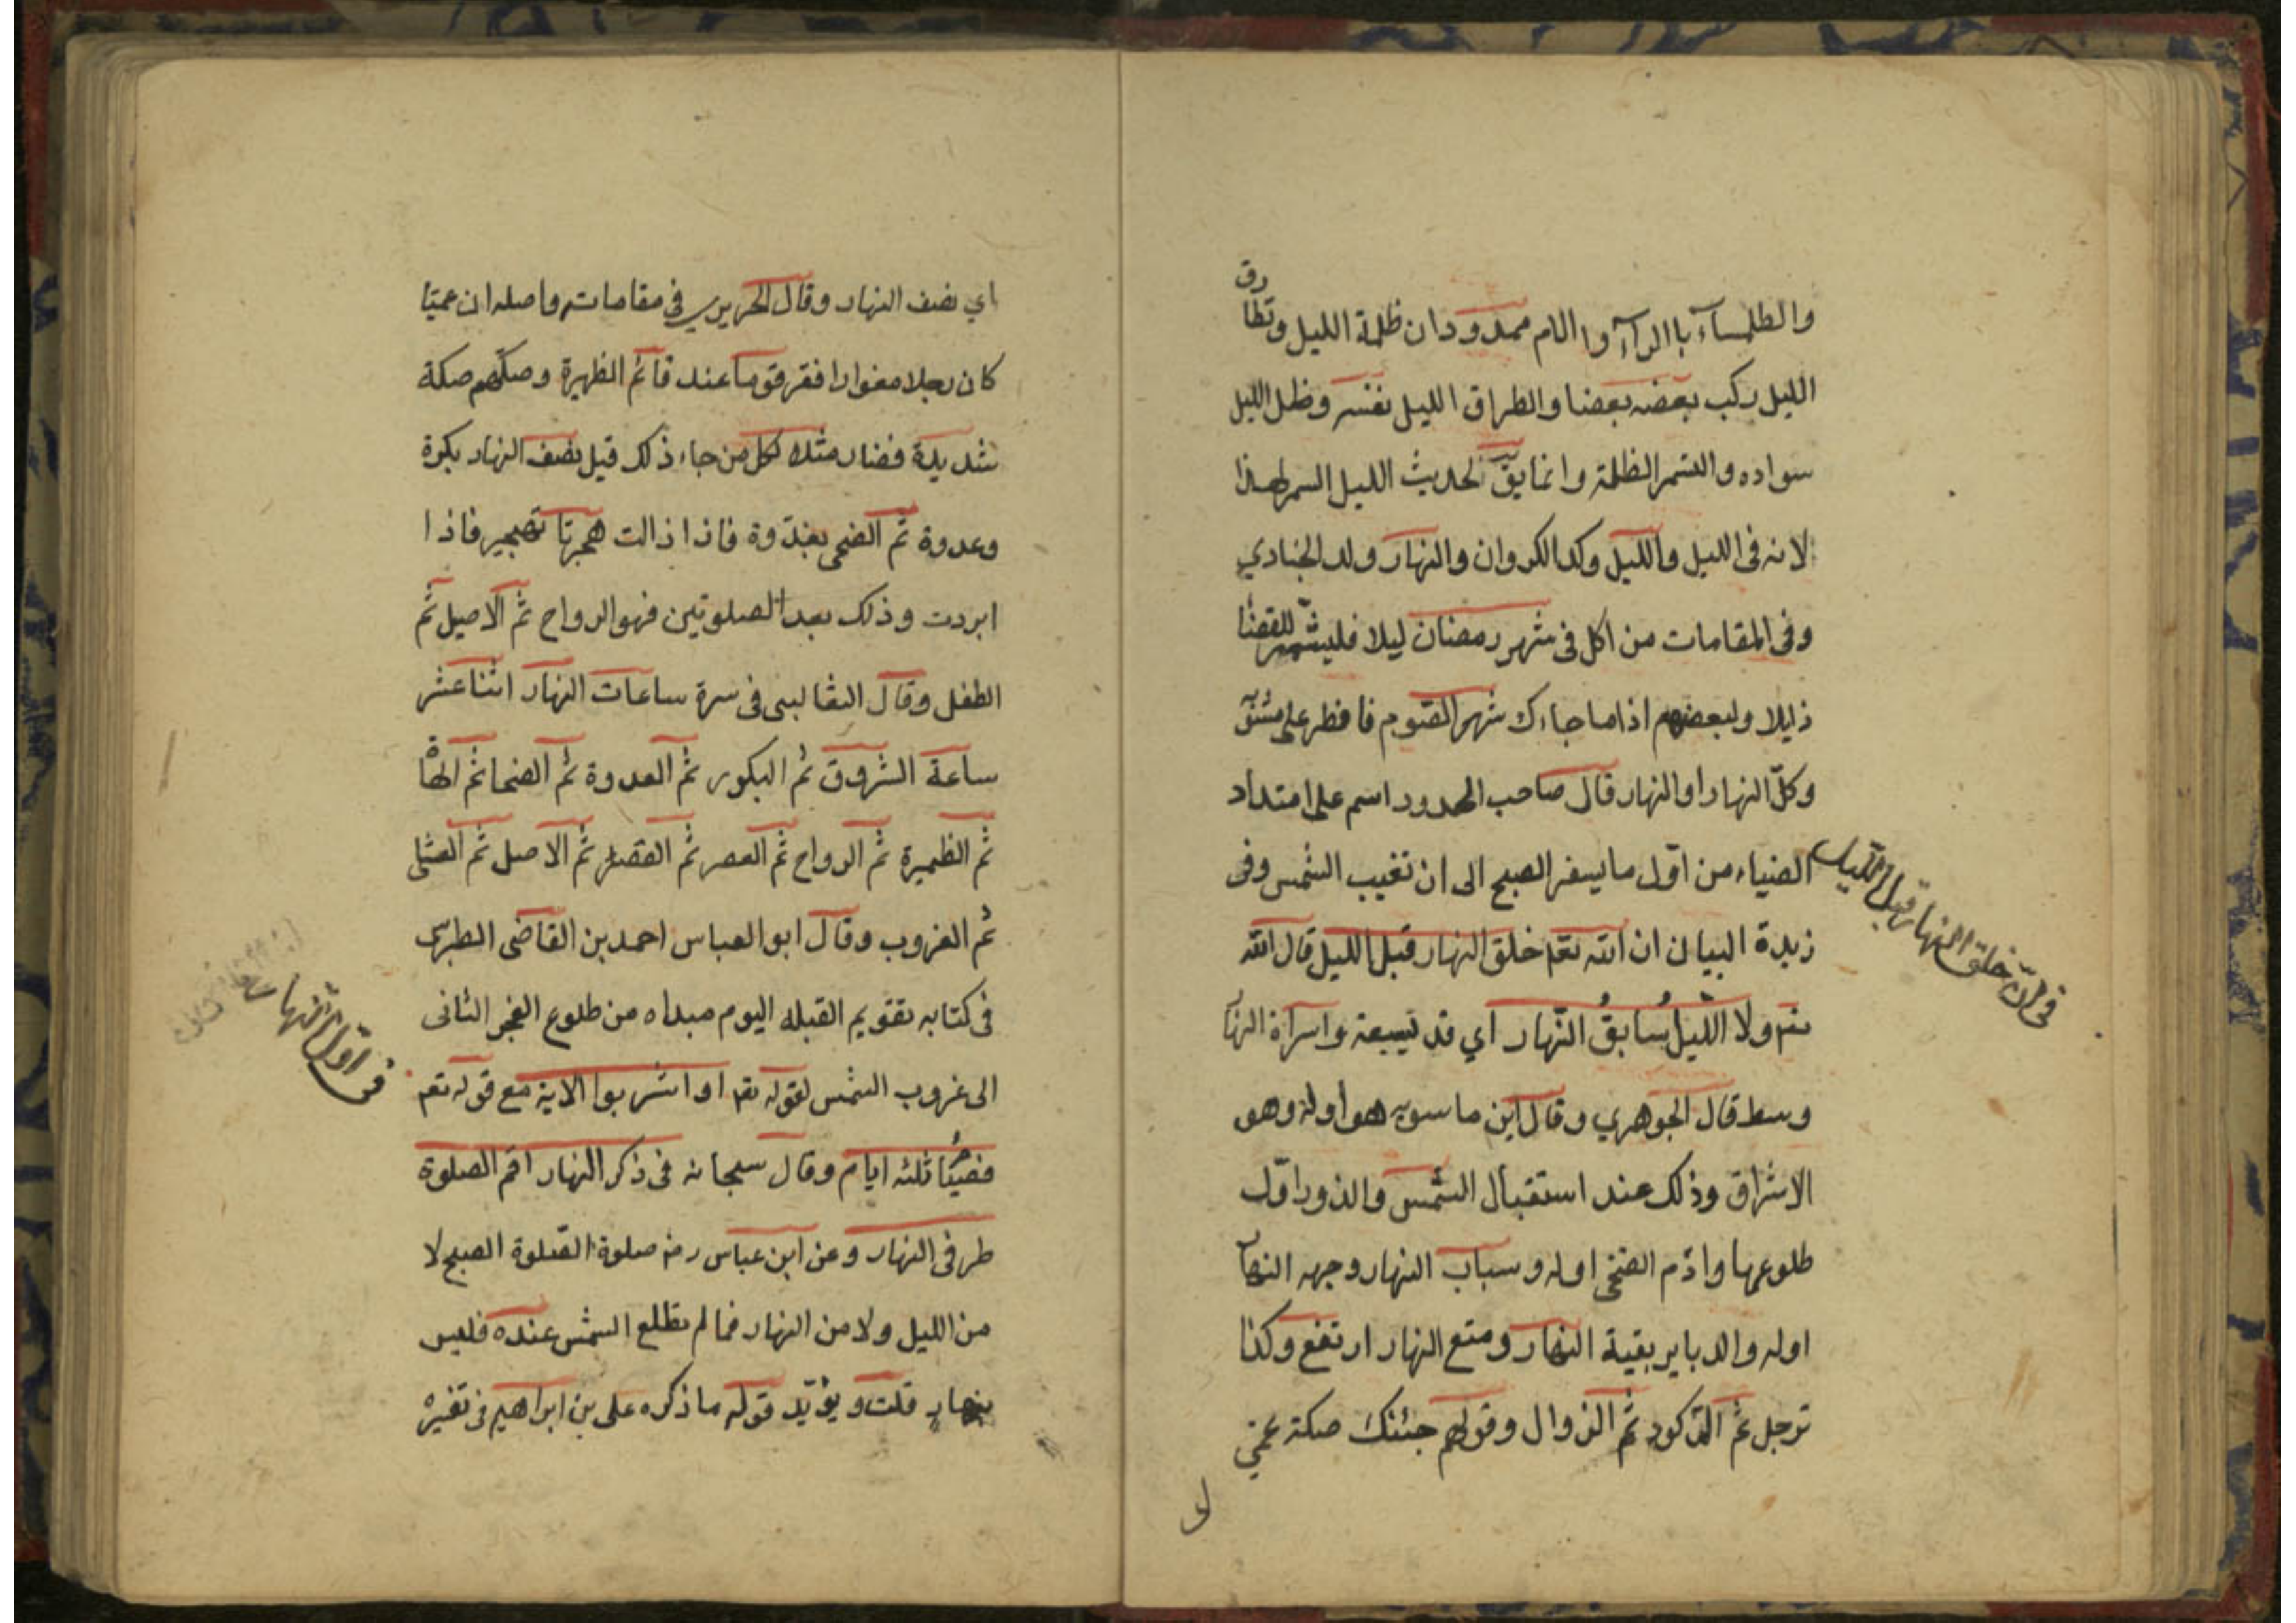 والطلمساء باالراء والام ممدودان ظلمة الليل وتطارق
الليل ركب بعضه بعضا والطراق الليل نفسه وظل الليل
سواده والسمر الظلمة وانما يق لحديث الليل السمر لهذا
لانه فى الليل والليل ولد الكروان والنهار ولد الحبارى
وفى المقامات من اكل فى شهر رمضان ليلا فليشمر للقضا
ذيلا ولبعضهم اذا ما جاءك شهر الصوم فافطر على
وكل النهار او النهار قال صاحب الحدود اسم على امتداد
الضياء من اوّل ما يسفر الصبح الى ان تغيب الشمس وفى
زبدة البيان ان الله تعم خلق النهار قبل الليل قال الله
تعم ولا اللّيل سابقُ النّهار اي قد نسبقه وسراة النها
وسط قال الجوهري وقال ابن ماسويه هو اوله وهو
الاشراق وذلك عند استقبال الشمس والذرور اوّل
طلوعها وادم الضحى اوله وسباب النهار وجهه النها
اوله والدبابير بقية النهار ومتع النهار ارتفع وكذا
ترجل ثم الركود ثم الزوال وقولهم جئتك صكة عمي
فى ان خلق النهار قبل الليل
اي نصف النهار وقال الحريري فى مقاماته واصله ان عميا
كان رجلا مغوارا فقر قوما عند قائم الظهيرة وصكهم صكة
شديدة فصار مثلا لكل من جاء ذلك قيل نصف النهار بكرة
وعدوة ثم الضحى بغدّوة فاذا زالت هجرتا تهجير فاذا
ابردت وذلك بعد الصلوتين فهو الرواح ثم الاصيل ثم
الطفل وقال الثعالبى فى سرة ساعات النهار اثنا عشر
ساعة الشروق ثم البكور ثم العدوة ثم الضحا ثم الهاة
ثم الظهيرة ثم الرواح ثم العصر ثم القصر ثم الاصل ثم العشى
ثم الغروب وقال ابو العباس احمد بن القاضى الطبرى
فى كتابه تقويم القبله اليوم مبداه من طلوع الفجر الثانى
الى غروب الشمس لقوله تعم اواشربوا الاية مع قوله تعم
فصيُما ثلثه ايام وقال سبحانه فى ذكر النهار اقم الصلوة
طرفى النهار وعن ابن عباس رضه صلوة الصلوة الصبح لا
من الليل ولا من النهار فما لم تطلع الشمس عنده فليس
بنهار قلت ويؤيّد قوله ما ذكره على بن ابراهيم فى تفسيره
فى اول النهار